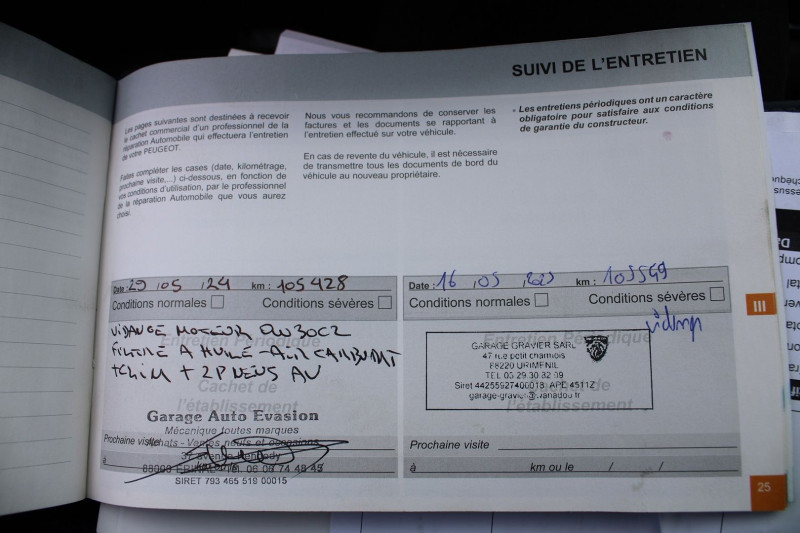 SUIVI DE L'ENTRETIEN
Les pages suivantes sont destinées à recevoir
le cachet commercial d'un professionnel de la
réparation Automobile qui effectuera l'entretien
de votre PEUGEOT.
Faites compléter les cases (date, kilométrage,
prochaine visite,...) ci-dessous, en fonction de
vos conditions d'utilisation, par le professionnel
de la réparation Automobile que vous aurez
choisi.
Nous vous recommandons de conserver les
factures et les documents se rapportant à
l'entretien effectué sur votre véhicule.
En cas de revente du véhicule, il est nécessaire
de transmettre tous les documents de bord du
véhicule au nouveau propriétaire.
• Les entretiens périodiques ont un caractère
obligatoire pour satisfaire aux conditions
de garantie du constructeur.
Date : 29 / 05 / 24 km : 105428
Conditions normales Conditions sévères
VIDANGE MOTEUR 0W30C2
Entretien Périodique
FILTRE A HUILE - AIR CARBURANT
+ CLIM + 2 PNEUS AV
Cachet de
l'établissement
Garage Auto Evasion
Mécanique toutes marques
Achats - Ventes neufs et occasions
Prochaine visite
37 avenue Kennedy
à
88000 EPINAL
SIRET 793 465 519 00015
Date : 16 / 05 / km : 103549
Conditions normales Conditions sévères
Entretien Périodique
vidange
GARAGE GRAVIER SARL
47 rue petit charmois
88220 URIMENIL
TEL 03 29 30 82 89
Siret 44255927400018 APE 4511Z
garage-gravier@wanadoo.fr
Cachet de
l'établissement
Prochaine visite
à km ou le / /
III
25